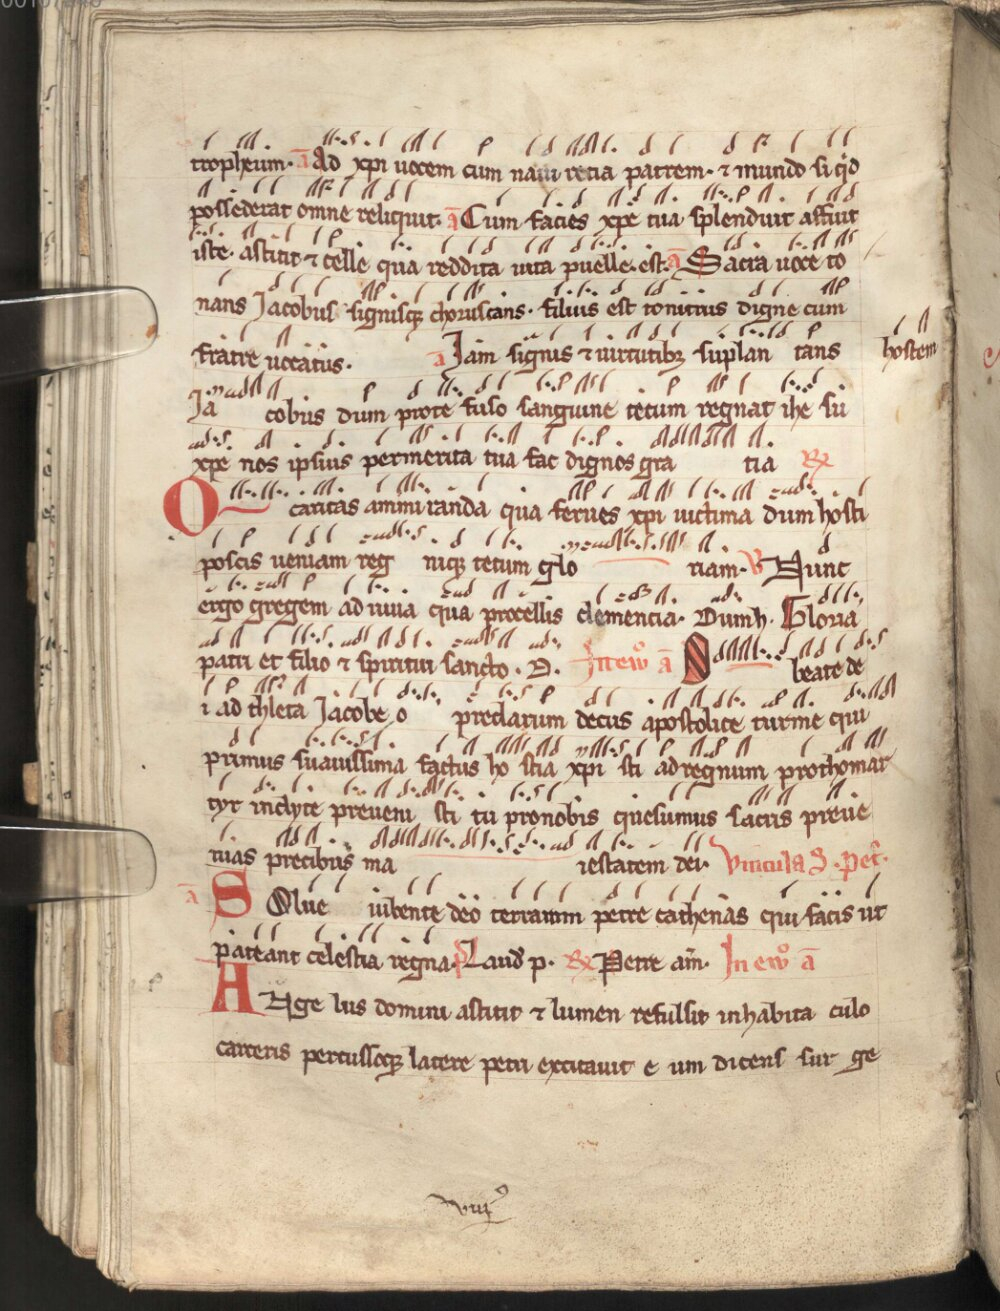 tropheum. ā Ad xpi uocem cum naui retia patrem. ⁊ mundo si qd
possederat omne reliquit. ā Cum facies xpe tua splenduit affuit
iste. astitit ⁊ celle qua reddita uita puelle est. ā Sacra uoce to
nans Jacobus signisq; choruscans. filius est tonitrus digne cum
fratre uocatus. ā Jam signis ⁊ uirtutibꝫ suplan tans hostem
Ja cobus dum prote fuso sanguine tecum regnat ihe su
xpe nos ipsius permerita tua fac dignos gra tia ℞
O caritas ammiranda qua ferues xpi uictima dum hosti
poscis ueniam reg niq; tecum glo riam. V Nunc
ergo gregem ad iuua qua procellis clemencia. Dum h. Gloria
patri et filio ⁊ spiritui sancto. D. In ewo ā O beate de
i ad thleta Jacobe o preclarum decus apostolice turme qui
primus suauissima factus ho stia xpi sti ad regnum prothomar
tyr inclyte preueni sti tu pronobis quesumus sacris preue
nias precibus ma iestatem dei. Vincula S. Pet.
ā SOlue iubente deo terrarum petre cathenas qui facis ut
pateant celestia regna. p̄ Laud p. ℞ Petre am. In ewo ā
ANge lus domini astitit ⁊ lumen refulsit in habita culo
carceris percussoq; latere petri excitauit e um dicens sur ge
viiij⁹